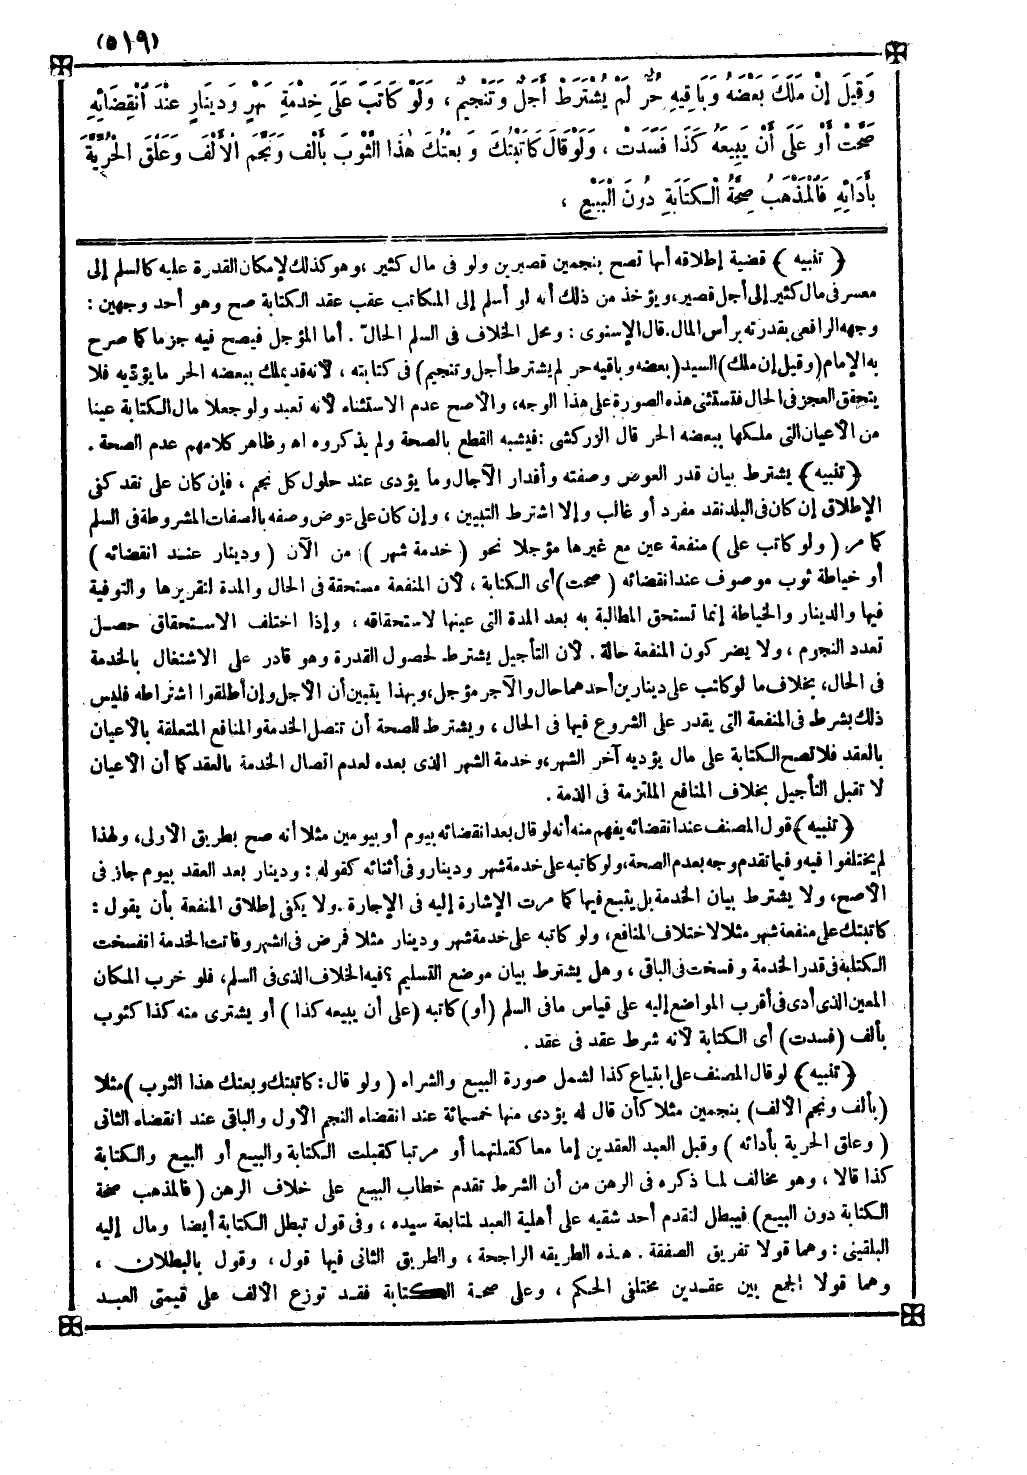 (٥١٩)
وَقِيلَ إِنْ مَلَكَ بَعْضَهُ وَبَاقِيهِ حُرٌّ لَمْ يُشْتَرَطْ أَجَلٌ وَتَنْجِيمٌ ، وَلَوْ كَاتَبَ عَلَى خِدْمَةِ شَهْرٍ وَدِينَارٍ عِنْدَ انْقِضَائِهِ
صَحَّتْ أَوْ عَلَى أَنْ يَبِيعَهُ كَذَا فَسَدَتْ ، وَلَوْ قَالَ كَاتَبْتُكَ وَ بِعْتُكَ هٰذَا الثَّوْبَ بِأَلْفٍ وَنَجَّمَ الْأَلْفَ وَعَلَّقَ الْحُرِّيَّةَ
بِأَدَائِهِ فَالْمَذْهَبُ صِحَّةُ الْكِتَابَةِ دُونَ الْبَيْعِ ،
( تنبيه ) قضية إطلاقه أنها تصح بنجمين قصيرين ولو فى مال كثير ، وهو كذلك لإمكان القدرة عليه كالسلم إلى
معسر فى مال كثير إلى أجل قصير، ويؤخذ من ذلك أنه لو أسلم إلى المكاتب عقب عقد الكتابة صح وهو أحد وجهين :
وجهه الرافعى بقدرته برأس المال. قال الإسنوى : ومحل الخلاف فى السلم الحالّ . أما المؤجل فيصح فيه جزما كما صرح
به الإمام (وقيل إن ملك) السيد (بعضه وباقيه حر لم يشترط أجل وتنجيم) فى كتابته ، لأنه قد يملك ببعضه الحر ما يؤديه فلا
يتحقق العجز فى الحال فتستثنى هذه الصورة على هذا الوجه، والأصح عدم الاستثناء لأنه تعبد ولو جعلا مال الكتابة عينا
من الأعيان التى ملكها ببعضه الحر قال الزركشى : فيشبه القطع بالصحة ولم يذكروه اه وظاهر كلامهم عدم الصحة .
( تنبيه ) يشترط بيان قدر العوض وصفته وأقدار الآجال وما يؤدى عند حلول كل نجم ، فإن كان على نقد كفى
الإطلاق إن كان فى البلد نقد مفرد أو غالب وإلا اشترط التبيين ، وإن كان على عوض وصفه بالصفات المشروطة فى السلم
كما مر ( ولو كاتب على ) منفعة عين مع غيرها مؤجلا نحو ( خدمة شهر ) من الآن ( ودينار عند انقضائه )
أو خياطة ثوب موصوف عند انقضائه ( صحت ) أى الكتابة ، لأن المنفعة مستحقة فى الحال والمدة لتقريرها والتوفية
فيها والدينار والخياطة إنما تستحق المطالبة به بعد المدة التى عينها لاستحقاقه ، وإذا اختلف الاستحقاق حصل
تعدد النجوم ، ولا يضر كون المنفعة حالة . لأن التأجيل يشترط لحصول القدرة وهو قادر على الاشتغال بالخدمة
فى الحال، بخلاف ما لو كاتب على دينارين أحدهما حال والآخر مؤجل، وبهذا يتبين أن الأجل وإن أطلقوا اشتراطه فليس
ذلك بشرط فى المنفعة التى يقدر على الشروع فيها فى الحال ، ويشترط للصحة أن تتصل الخدمة والمنافع المتعلقة بالأعيان
بالعقد فلا تصح الكتابة على مال يؤديه آخر الشهر، وخدمة الشهر الذى بعده لعدم اتصال الخدمة بالعقد كما أن الأعيان
لا تقبل التأجيل بخلاف المنافع الملتزمة فى الذمة .
( تنبيه ) قول المصنف عند انقضائه يفهم منه أنه لو قال بعد انقضائه بيوم أو بيومين مثلا أنه صح بطريق الأولى، ولهذا
لم يختلفوا فيه وفيما تقدم وجه بعدم الصحة، ولو كاتبه على خدمة شهر ودينار وفى أثنائه كقوله : ودينار بعد العقد بيوم جاز فى
الأصح، ولا يشترط بيان الخدمة بل يتبع فيها كما مرت الإشارة إليه فى الإجارة . ولا يكفى إطلاق المنفعة بأن يقول :
كاتبتك على منفعة شهر مثلا لاختلاف المنافع، ولو كاتبه على خدمة شهر ودينار مثلا فمرض فى الشهر وفاتت الخدمة انفسخت
الكتابة فى قدر الخدمة وفسخت فى الباقى ، وهل يشترط بيان موضع التسليم ؟ فيه الخلاف الذى فى السلم، فلو خرب المكان
المعين الذى أدى فى أقرب المواضع إليه على قياس ما فى السلم (أو) كاتبه (على أن يبيعه كذا ) أو يشترى منه كذا كثوب
بألف (فسدت) أى الكتابة لأنه شرط عقد فى عقد .
( تنبيه ) لو قال المصنف على ابتياع كذا لشمل صورة البيع والشراء ( ولو قال : كاتبتك وبعتك هذا الثوب ) مثلا
(بألف ونجم الألف) بنجمين مثلا كأن قال له يؤدى منها خمسمائة عند انقضاء النجم الأول والباقى عند انقضاء الثانى
( وعلق الحرية بأدائه ) وقبل العبد العقدين إما معا كقبلتهما أو مرتبا كقبلت الكتابة والبيع أو البيع والكتابة
كذا قالا ، وهو مخالف لما ذكره فى الرهن من أن الشرط تقدم خطاب البيع على خلاف الرهن ( فالمذهب صحة
الكتابة دون البيع) فيبطل لتقدم أحد شقيه على أهلية العبد لمتابعة سيده ، وفى قول تبطل الكتابة أيضا ومال إليه
البلقينى : وهما قولا تفريق الصفقة . هذه الطريقه الراجحة ، والطريق الثانى فيها قول ، وقول بالبطلان ،
وهما قولا الجمع بين عقدين مختلفى الحكم ، وعلى صحة الكتابة فقد توزع الألف على قيمتى العبد